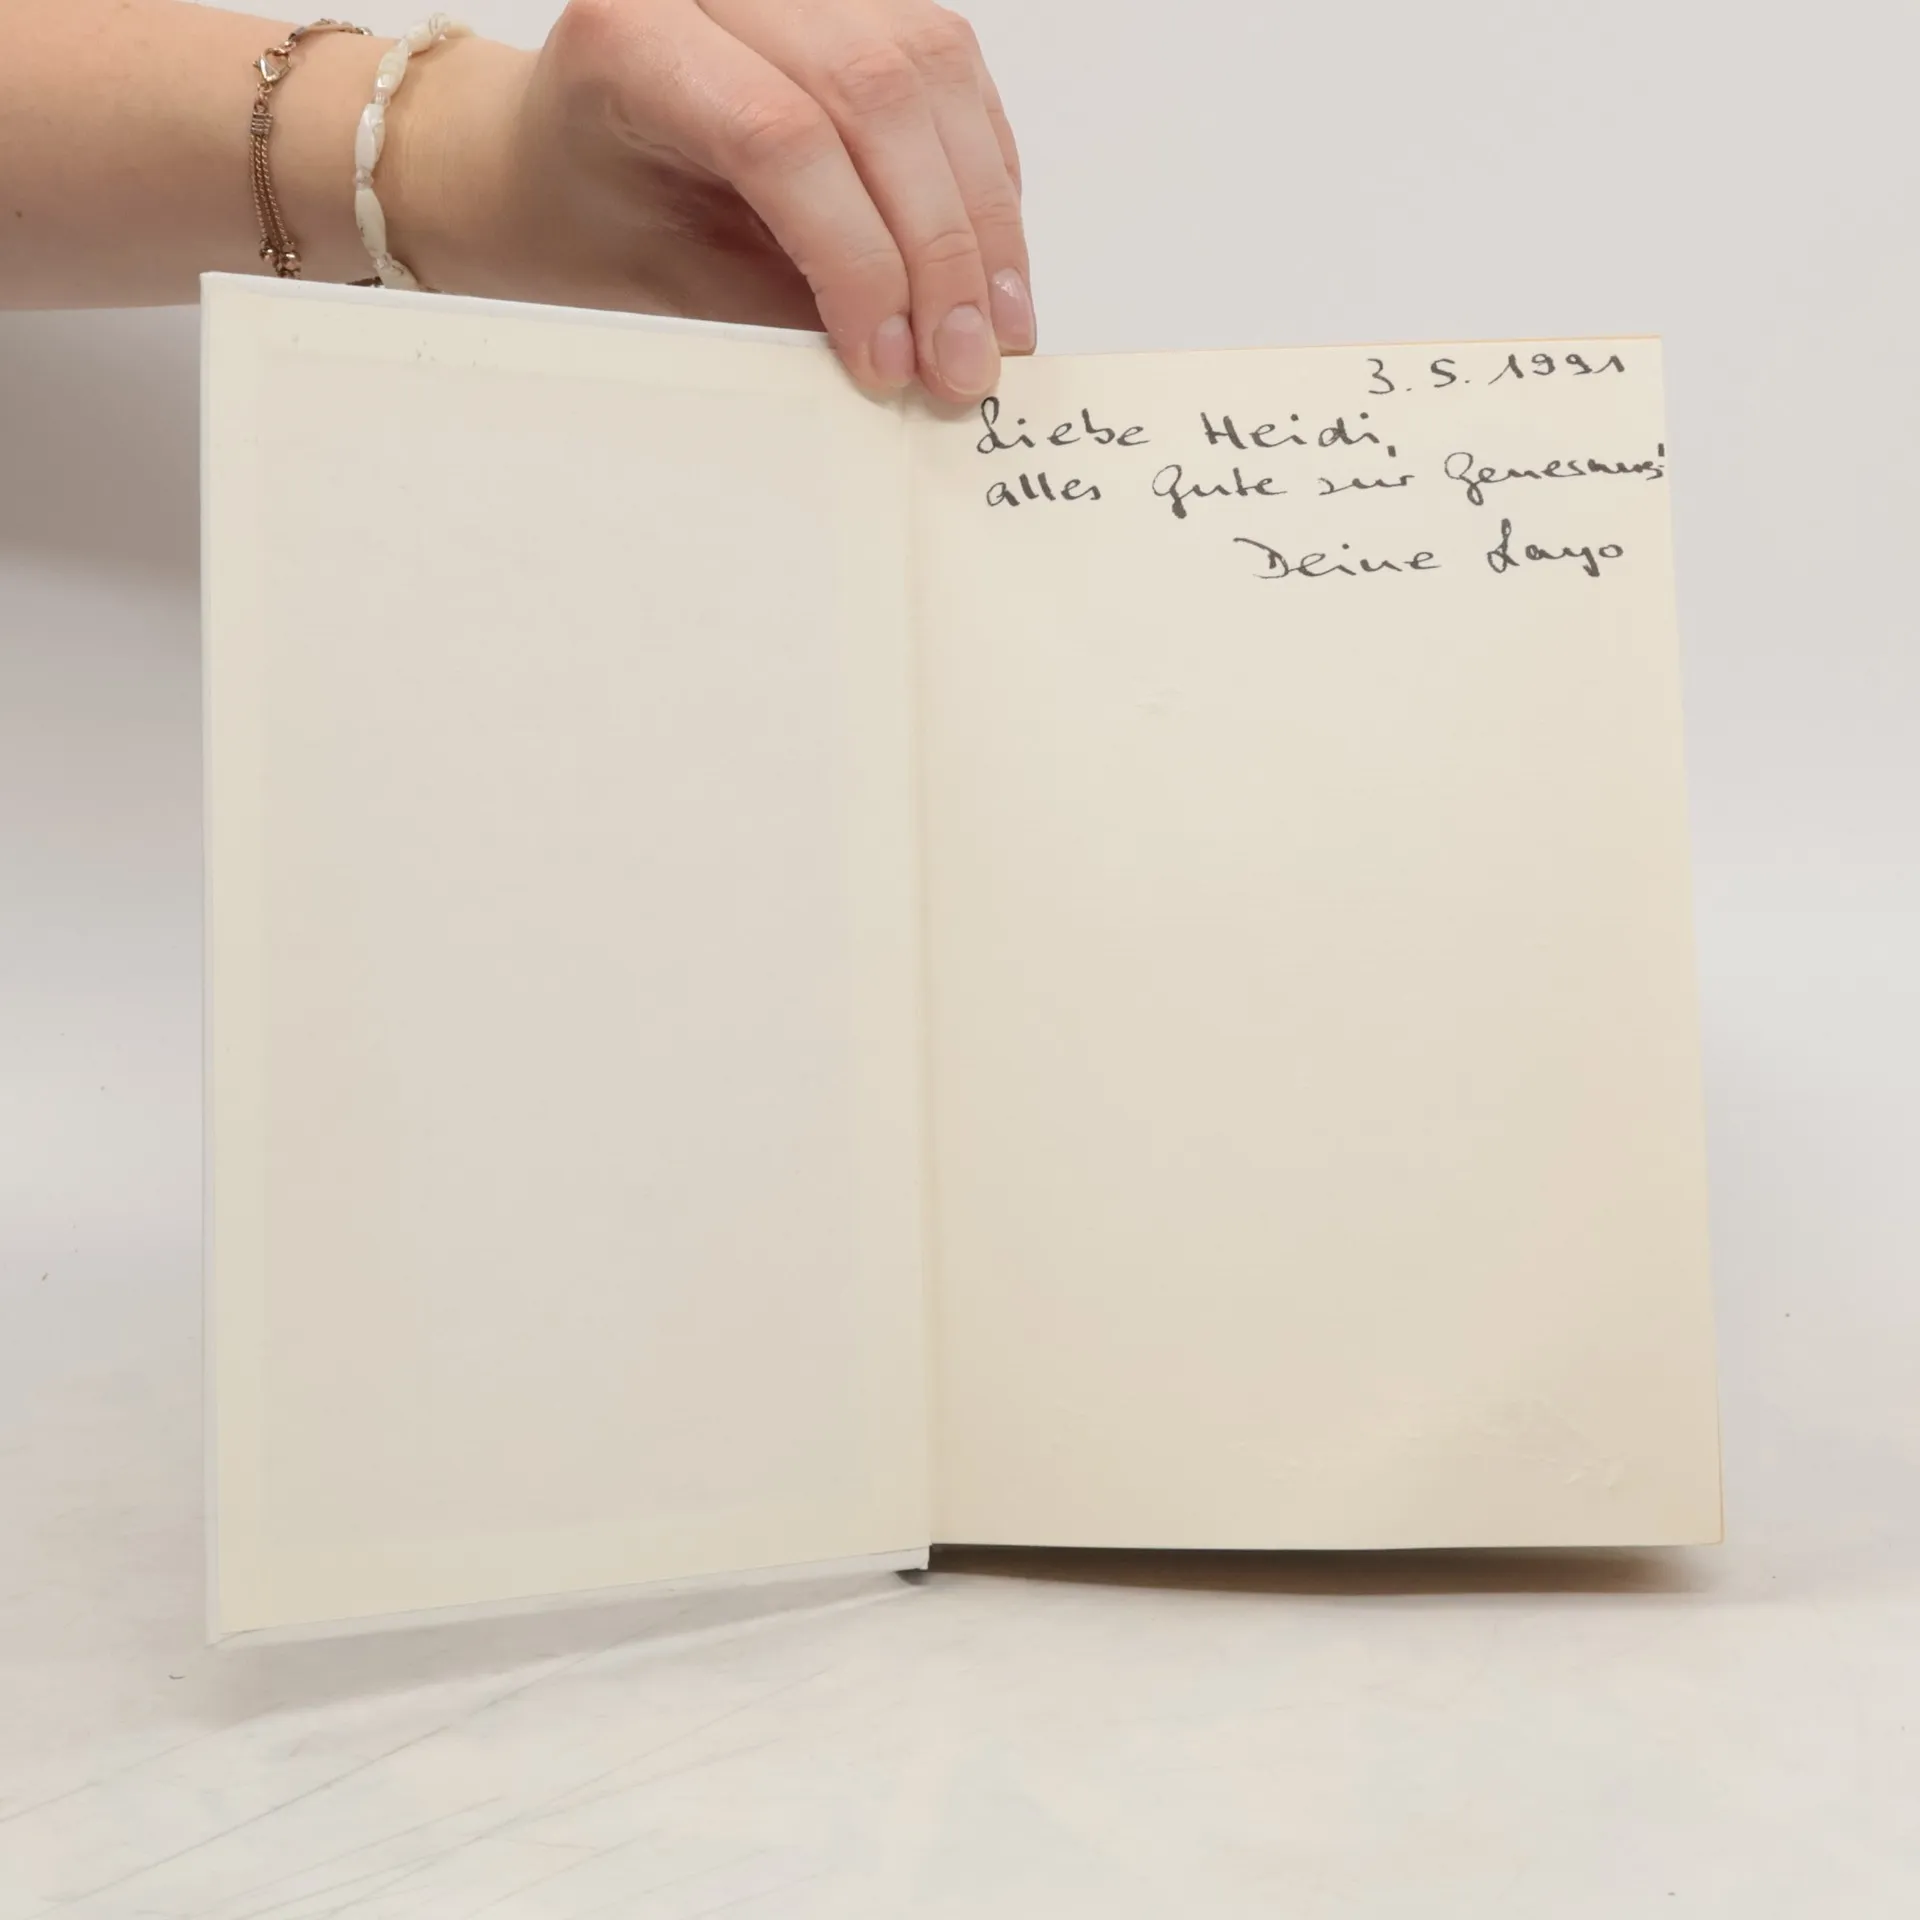 3. 5. 1991
Liebe Heidi,
alles Gute zur Genesung!
Deine Layo